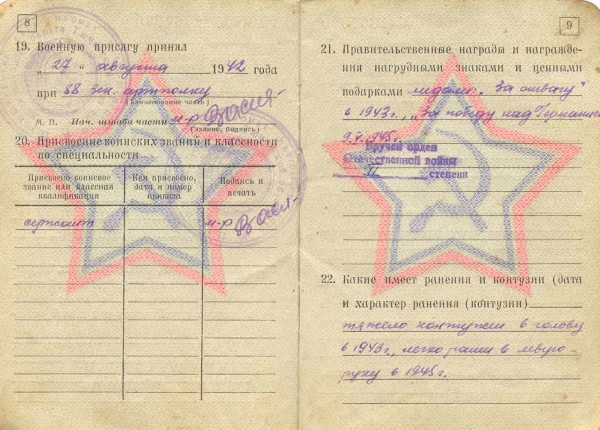 8
19. Военную присягу принял
„27" августа 1942 года
при 58 зен. артполку
(наименование части)
М. П. Нач. штаба части м-р
(звание, подпись)
20. Присвоение воинских званий и классности
по специальности
Присвоено воинское звание или классная квалификация
Кем присвоено, дата и номер приказа
Подпись и печать
сержант
м-р
9
21. Правительственные награды и награжде-
ния нагрудными знаками и ценными
подарками медаль „За отвагу"
в 1943г., „За победу над Германией
9.V.1945г.
Вручен орден
Отечественной войны
II степени
22. Какие имеет ранения и контузии (дата
и характер ранения (контузии)
тяжело контужен в голову
в 1943г., легко ранен в левую
руку в 1945г.